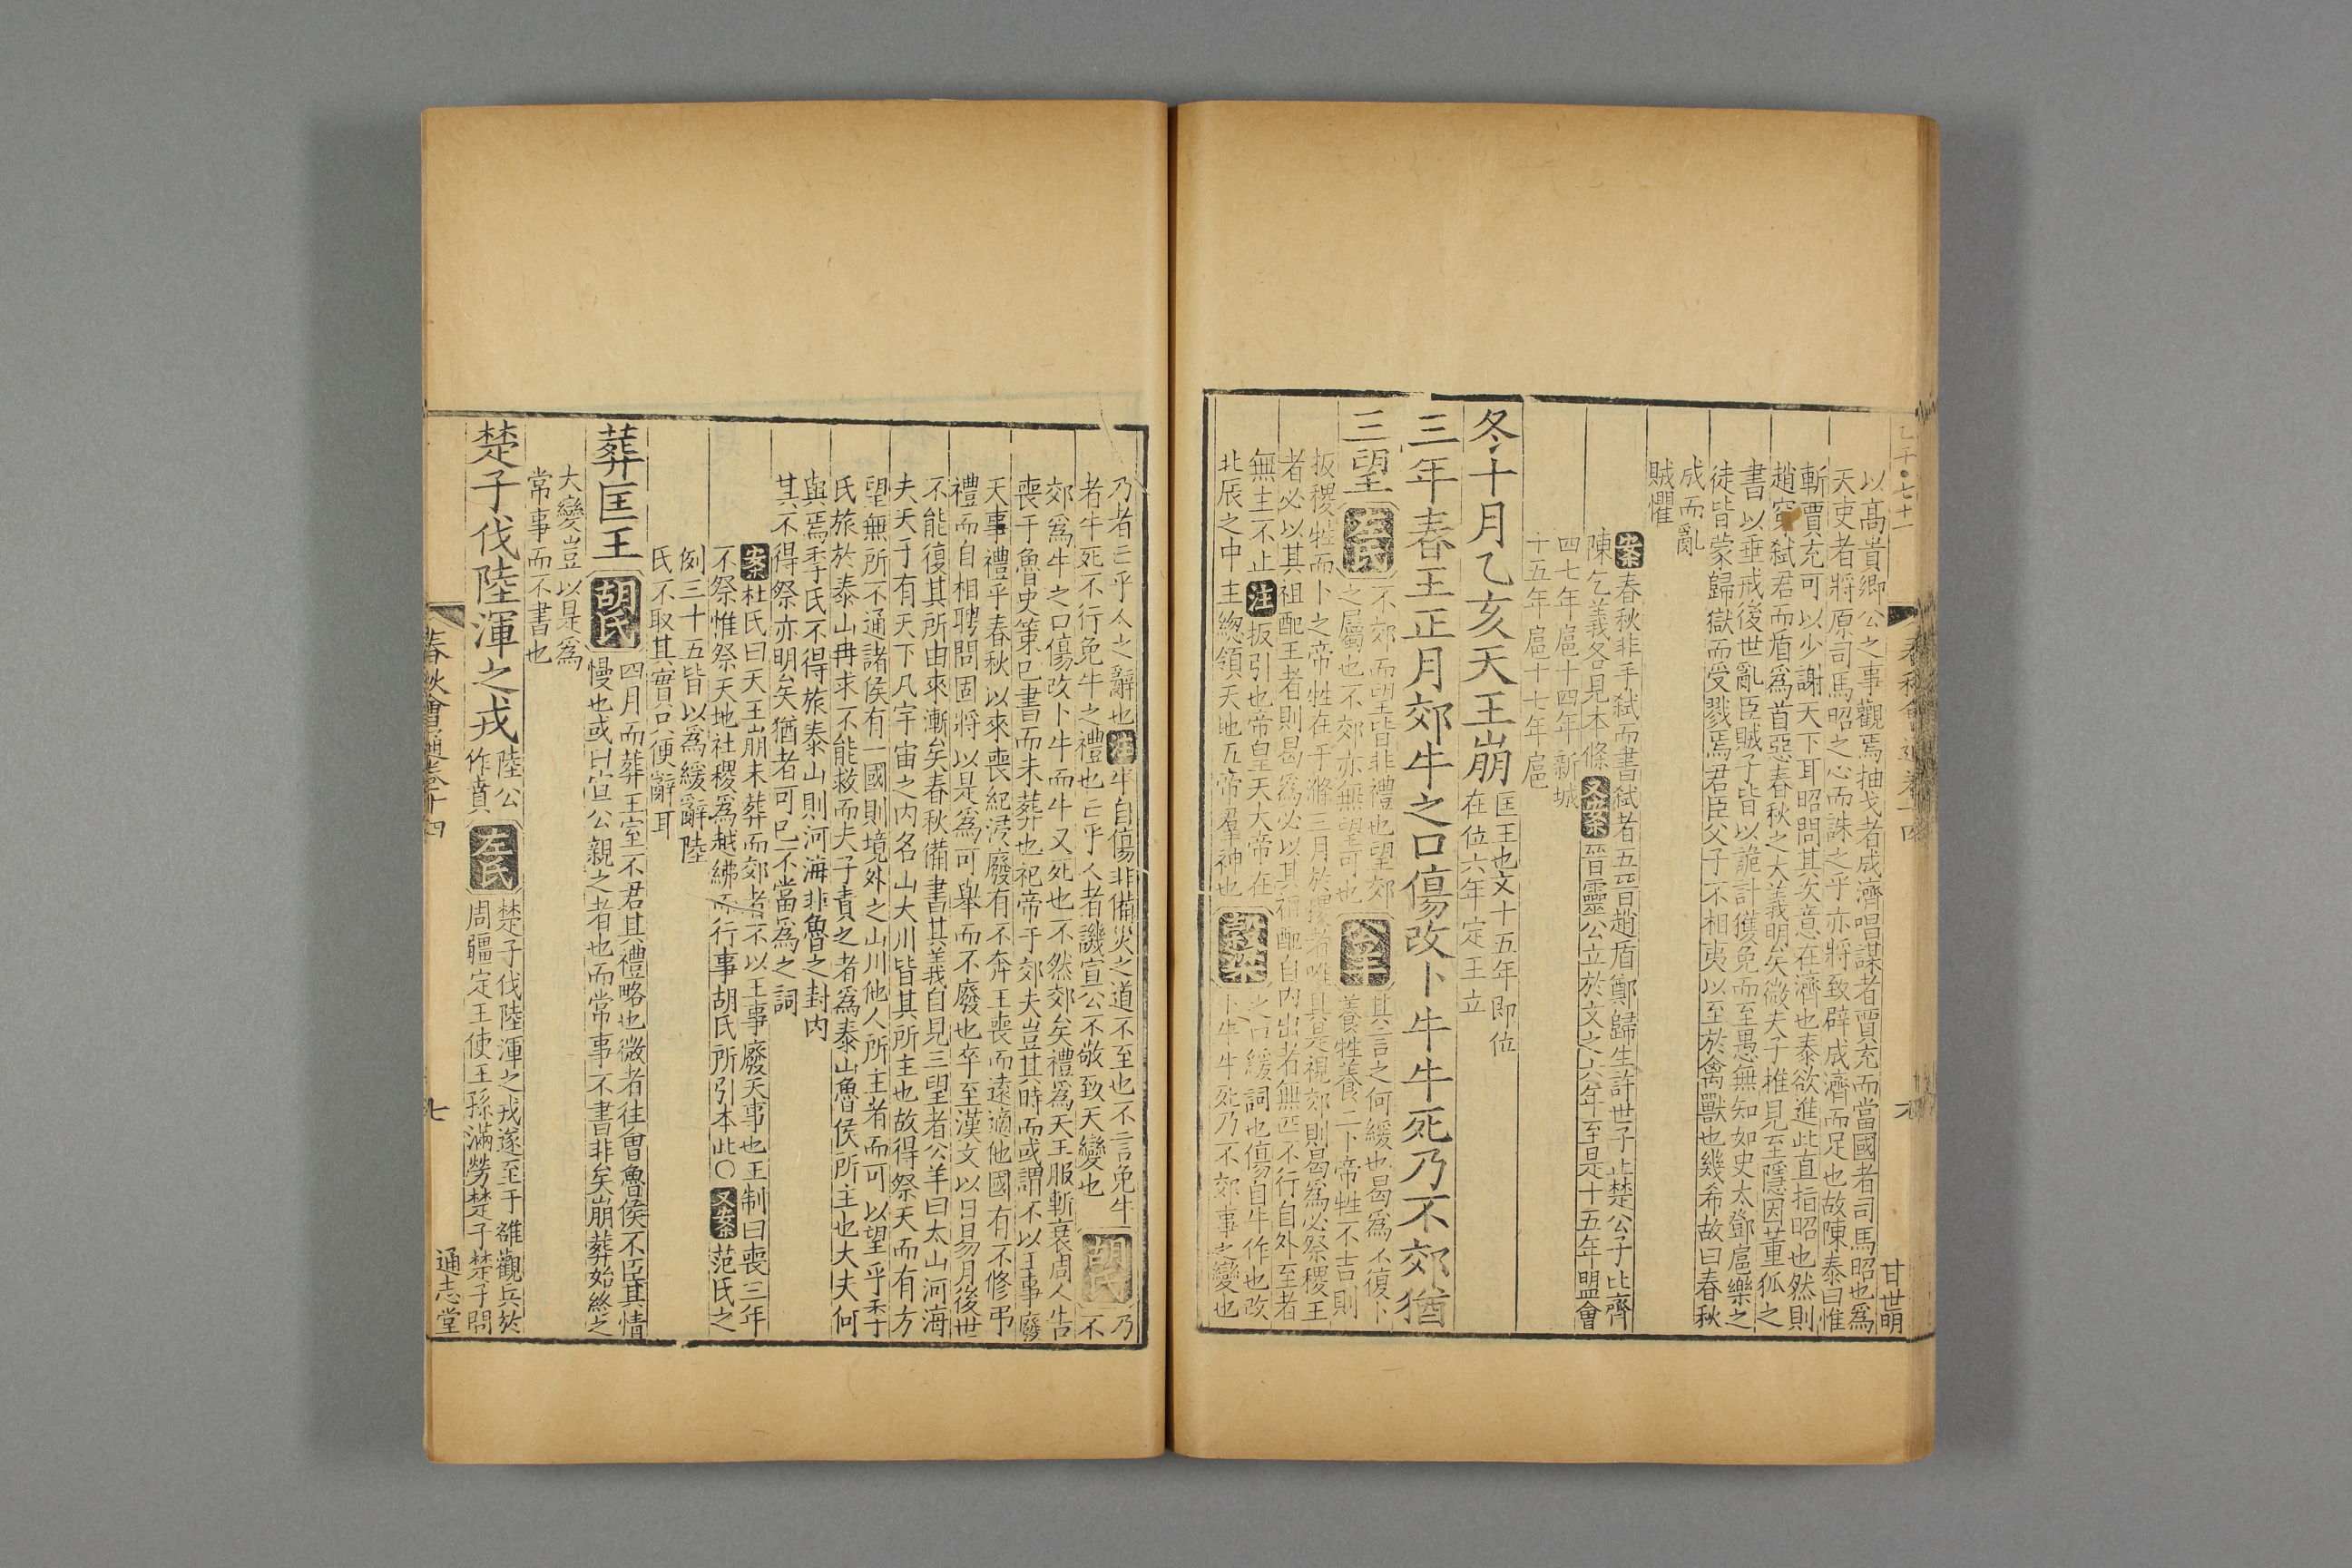 以髙貴鄉公之事觀焉抽戈者成濟唱謀者賈充而當國者司馬昭也為
天吏者將原司馬昭之心而誅之乎亦將致辟成濟而足也故陳泰曰惟
斬賈充可以少謝天下耳昭問其次意在濟也泰欲進此直指昭也然則
趙穿弑君而盾為首惡春秋之大義明矣微夫子推見至隱因董狐之
書以垂戒後世亂臣賊子皆以詭計獲免而至愚無知如史太鄧扈樂之
徒皆蒙歸獄而受戮焉君臣父子不相夷以至於禽獸也幾希故曰春秋
成而亂
賊懼
案春秋非手弑而書弑者五晉趙盾鄭歸生許世子止楚公子比齊
陳乞義各見本條又案晉靈公立於文之六年至是十五年盟會
四七年扈十四年新城
十五年扈十七年扈
冬十月乙亥天王崩匡王也文十五年即位
在位六年定王立
三年春王正月郊牛之口傷改卜牛牛死乃不郊猶
三望左氏不郊而望皆非禮也望郊
之屬也不郊亦無望可也
公羊其言之何緩也曷為不復卜
養牲養二卜帝牲不吉則
扳稷牲而卜之帝牲在于滌三月於稷者唯具是視郊則曷為必祭稷王
者必以其祖配王者則曷為必以其祖配自内出者無匹不行自外至者
無主不止注扳引也帝皇天大帝在
北辰之中主緫領天地五帝羣神也
穀梁之口緩詞也傷自牛作也改
卜牛牛死乃不郊事之變也
乃者亡乎人之辭也注牛自傷非備災之道不至也不言免牛
者牛死不行免牛之禮也亡乎人者譏宣公不敬致天變也
胡氏乃
不
郊為牛之口傷改卜牛而牛又死也不然郊矣禮為天王服斬衰周人告
喪于魯史策已書而未葬也祀帝于郊夫豈其時而或謂不以王事廢
天事禮乎春秋以來喪紀浸廢有不奔王喪而遠適他國有不修弔
禮而自相聘問固將以是為可舉而不廢也卒至漢文以日易月後世
不能復其所由來漸矣春秋備書其義自見三望者公羊曰太山河海
夫天子有天下凡宇宙之内名山大川皆其所主也故得祭天而有方
望無所不通諸侯有一國則境外之山川他人所主者而可以望乎季
氏旅於泰山冉求不能救而夫子責之者為泰山魯侯所主也大夫何
與焉季氏不得旅泰山則河海非魯之封内
其不得祭亦明矣猶者可已不當為之詞
案杜氏曰天王崩未葬而郊者不以王事廢天事也王制曰喪三年
不祭惟祭天地社稷為越紼而行事胡氏所引本此○又案范氏之
例三十五皆以為緩辭陸
氏不取其實只便辭耳
葬匡王胡氏四月而葬王室不君其禮略也微者往會魯侯不臣其情
慢也或曰宣公親之者也而常事不書非矣崩葬始終之
大變豈以是為
常事而不書也
楚子伐陸渾之戎陸公
作賁
左氏楚子伐陸渾之戎遂至于雒觀兵於
周疆定王使王孫滿勞楚子楚子問
春秋會通卷十四
七
通志堂
甘世明